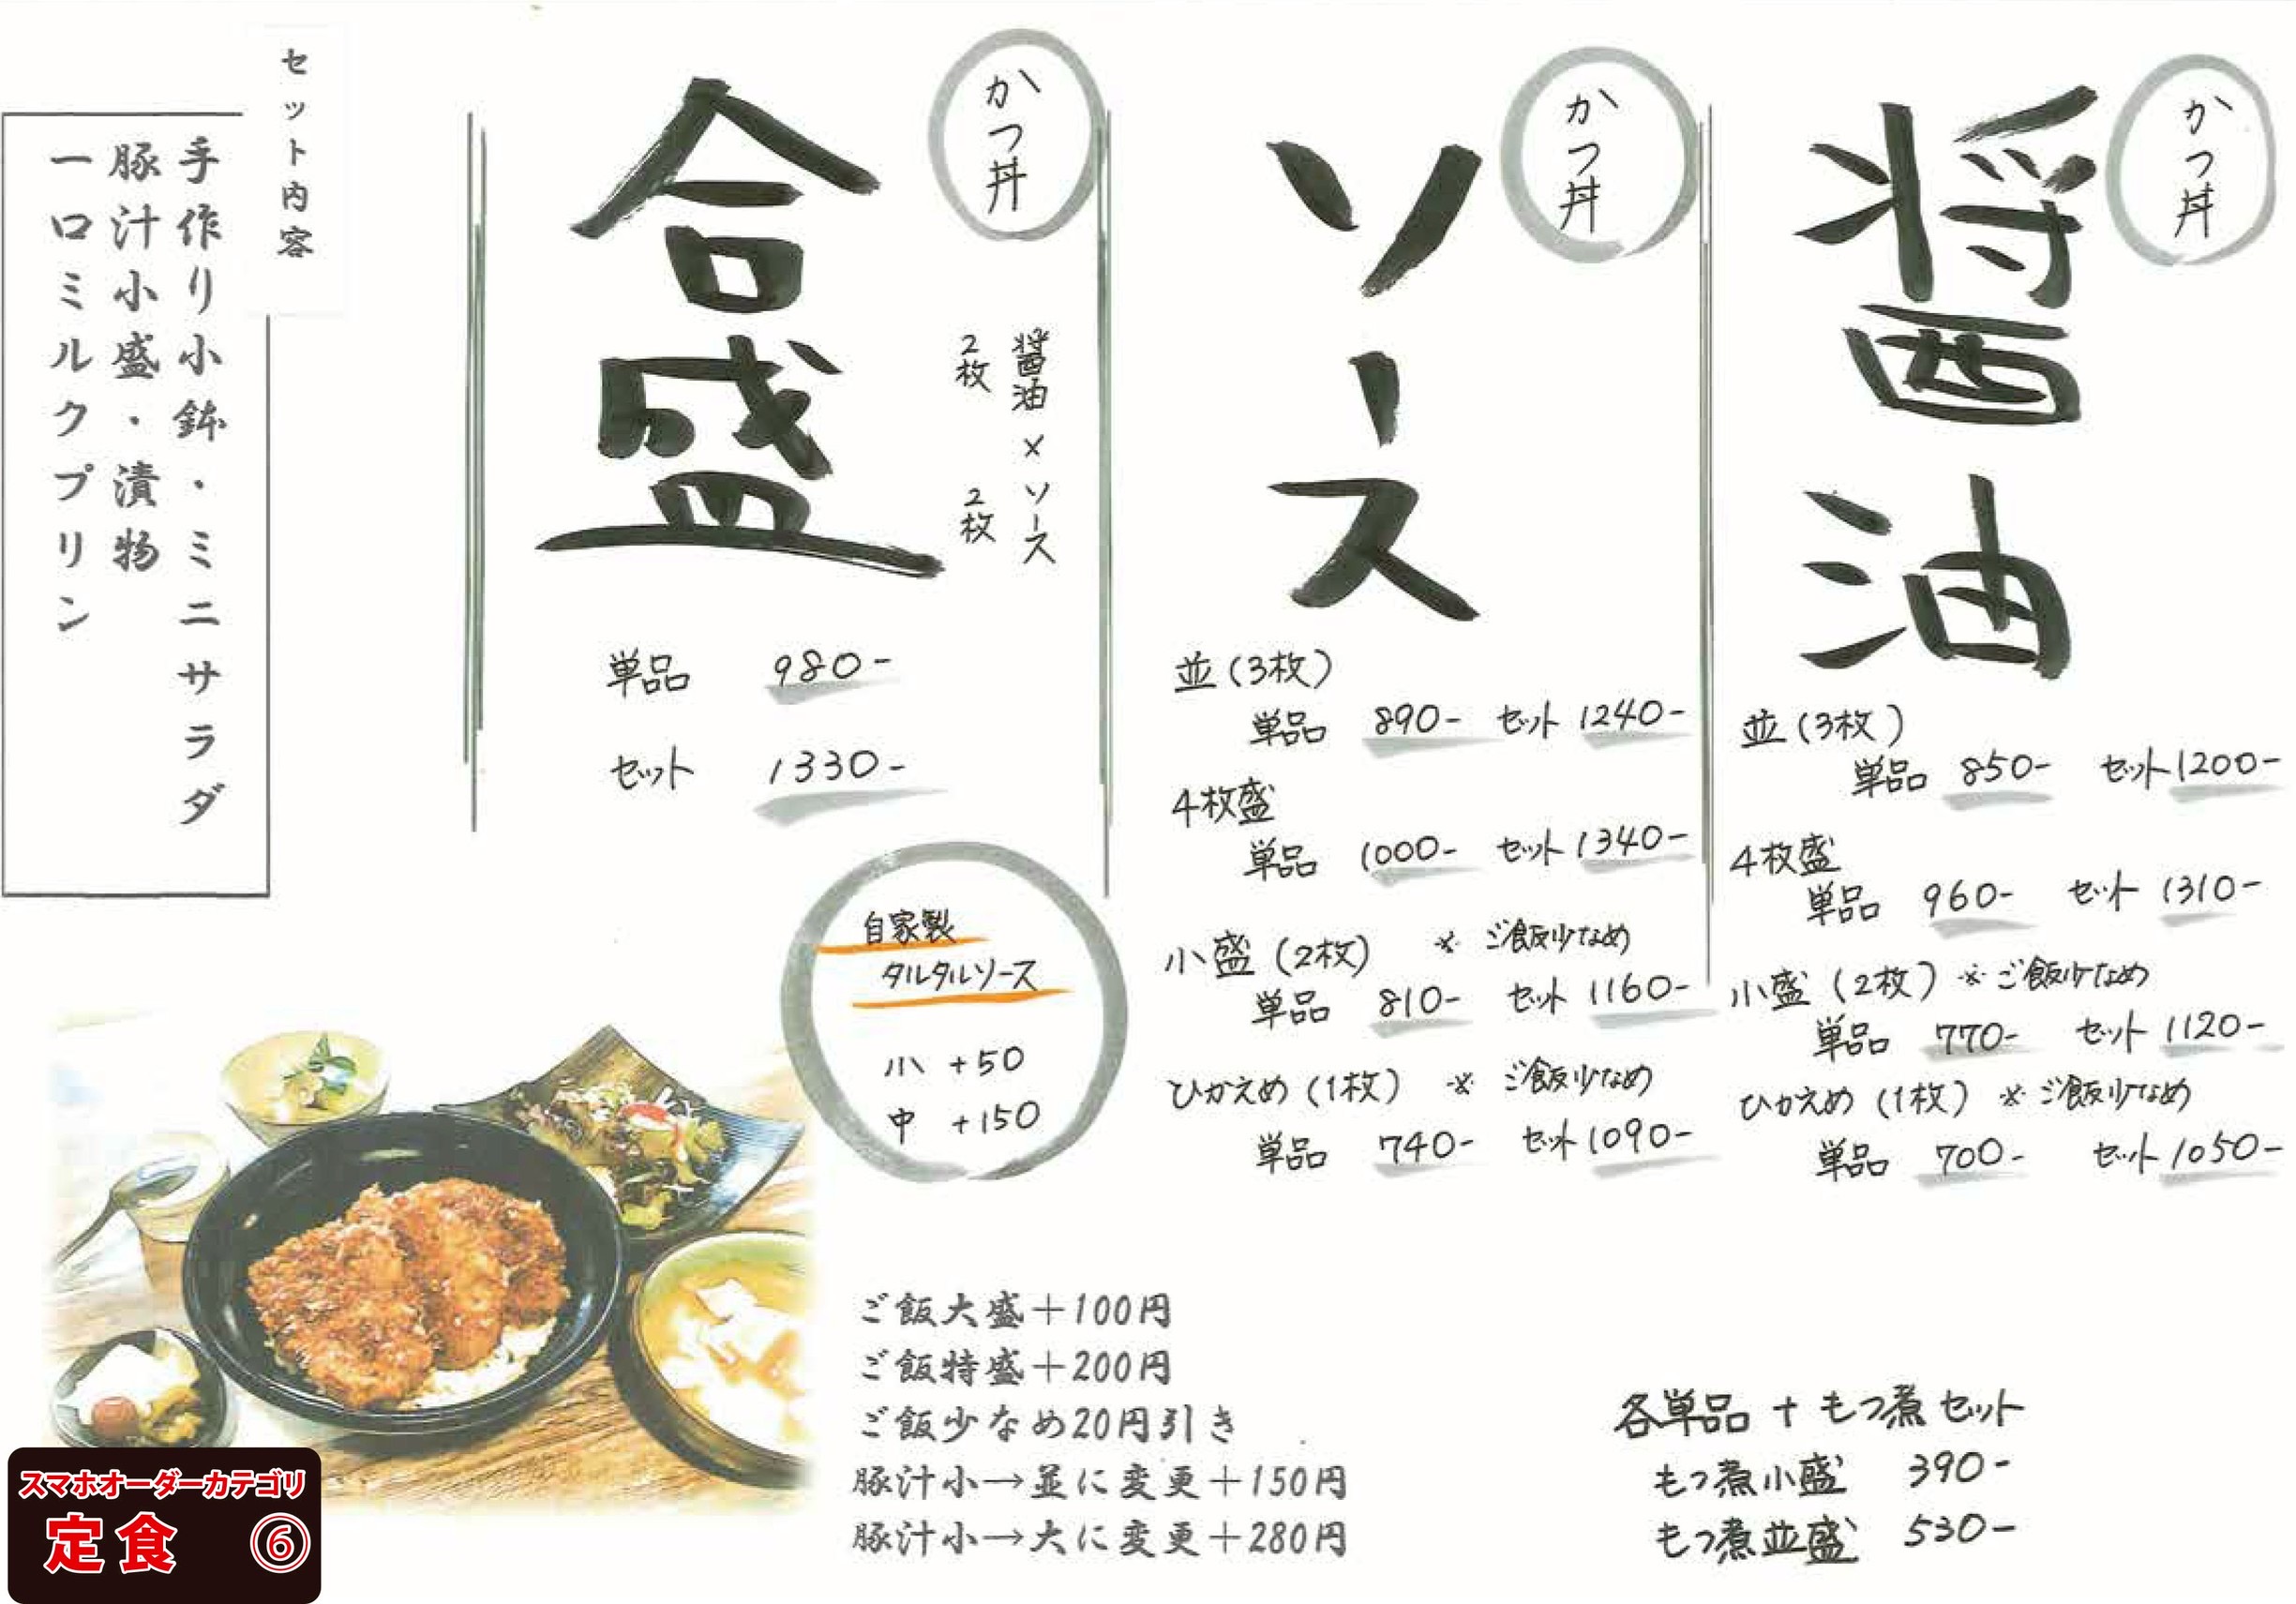 かつ丼
醤油
並(3枚)
単品 850- セット1200-
4枚盛
単品 960- セット 1310-
小盛(2枚)※ご飯少なめ
単品 770- セット1120-
ひかえめ(1枚)※ご飯少なめ
単品 700- セット1050-
かつ丼
ソース
並(3枚)
単品 890- セット 1240-
4枚盛
単品 1000- セット1340-
小盛(2枚) ※ ご飯少なめ
単品 810- セット 1160-
ひかえめ(1枚) ※ ご飯少なめ
単品 740- セット1090-
かつ丼
合盛
醤油×ソース
2枚 2枚
単品 980-
セット 1330-
自家製
タルタルソース
小 +50
中 +150
セット内容
手作り小鉢・ミニサラダ
豚汁小盛・漬物
一口ミルクプリン
ご飯大盛+100円
ご飯特盛+200円
ご飯少なめ20円引き
豚汁小→並に変更+150円
豚汁小→大に変更+280円
各単品 + もつ煮セット
もつ煮小盛 390-
もつ煮並盛 530-
スマホオーダーカテゴリ
定食 ⑥